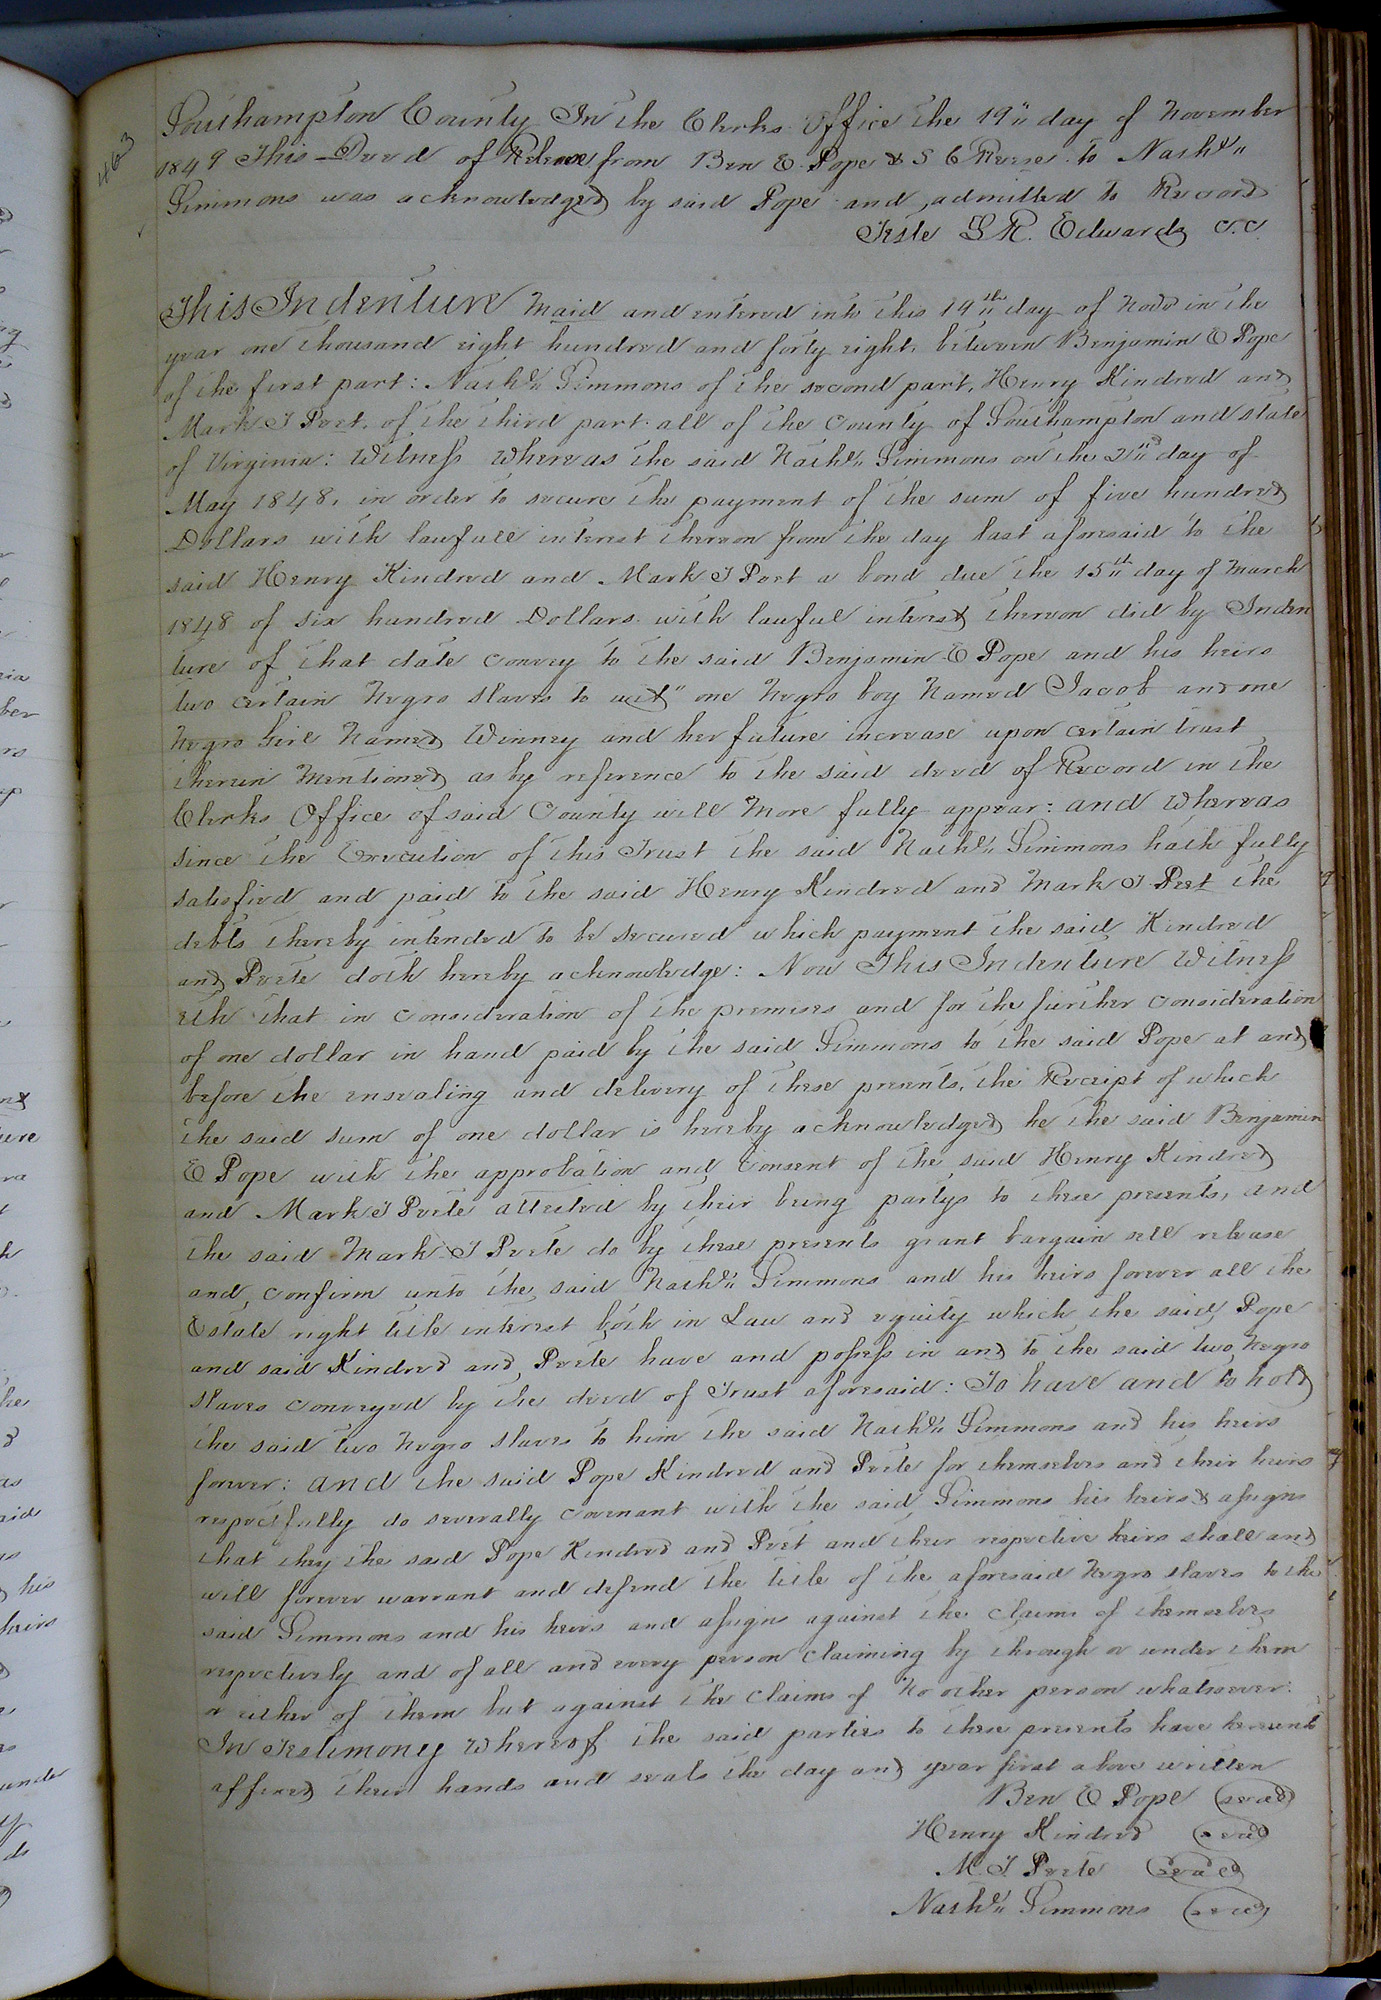 463
Southampton County In the Clerks Office the 19" day of November
1849 This Deed of Release from Ben E. Pope & S C Reese to Nathl"
Simmons was acknowledged by said Pope and admitted to Record
Teste L R. Edwards C.C.
This Indenture Maid and entered into this 14th day of Novr in the
year one thousand eight hundred and forty eight, between Benjamin E Pope
of the first part: Nathl" Simmons of the second part, Henry Kindred and
Mark J Peet, of the third part. all of the County of Southampton and state
of Virginia: Witness Whereas the said Nathl" Simmons on the 2nd day of
May 1848, in order to secure the payment of the sum of five hundred
Dollars with lawfull interest thereon from the day last aforesaid to the
said Henry Kindred and Mark J Peet a bond due the 15th day of March
1848 of six hundred Dollars with lawful interest thereon did by Inden
ture of that date convey to the said Benjamin E Pope and his heirs
two certain Negro slaves to wit" one Negro boy Named Jacob and one
Negro Girl Named Winney and her future increase upon certain trust
therein Mentioned as by reference to the said deed of Record in the
Clerks Office of said County will More fully appear: and Whereas
since the Execution of this Trust the said Nathl" Simmons hath fully
satisfied and paid to the said Henry Kindred and Mark J Peet the
debts thereby intended to be secured which payment the said Kindred
and Peete doth hereby acknowledge: Now This Indenture Witness
eth that in consideration of the premises and for the further consideration
of one dollar in hand paid by the said Simmons to the said Pope at and
before the ensealing and delivery of these presents, the Receipt of which
the said sum of one dollar is hereby acknowledged he the said Benjamin
E Pope with the approbation and Consent of the said Henry Kindred
and Mark J Peete attested by their being partys to these presents, and
the said Mark J Peete do by these presents grant bargain sell release
and, confirm unto the said Nathl" Simmons and his heirs forever all the
Estate right title interest both in Law and equity which the said Pope
and said Kindred and Peete have and possess in and to the said two Negro
slaves conveyed by the deed of Trust aforesaid: To have and to hold
the said two Negro slaves to him the said Nathl" Simmons and his heirs
forever: and the said Pope Kindred and Peete for themselves and their heirs
respectfully do severally covenant with the said Simmons his heirs & assigns
that they the said Pope Kindred and Peet and their respective heirs shall and
will forever warrant and defend the title of the aforesaid Negro slaves to the
said Simmons and his heirs and assigns against the claims of themselves
respectively and of all and every person claiming by through or under them
or either of them but against the claims of No other person whatsoever.
In Testimony Whereof the said parties to these presents have hereunto
affixed their hands and seals the day and year first above written
Ben E Pope (seal)
Henry Kindred (seal)
M. J. Peete (seal)
Nathl" Simmons (seal)